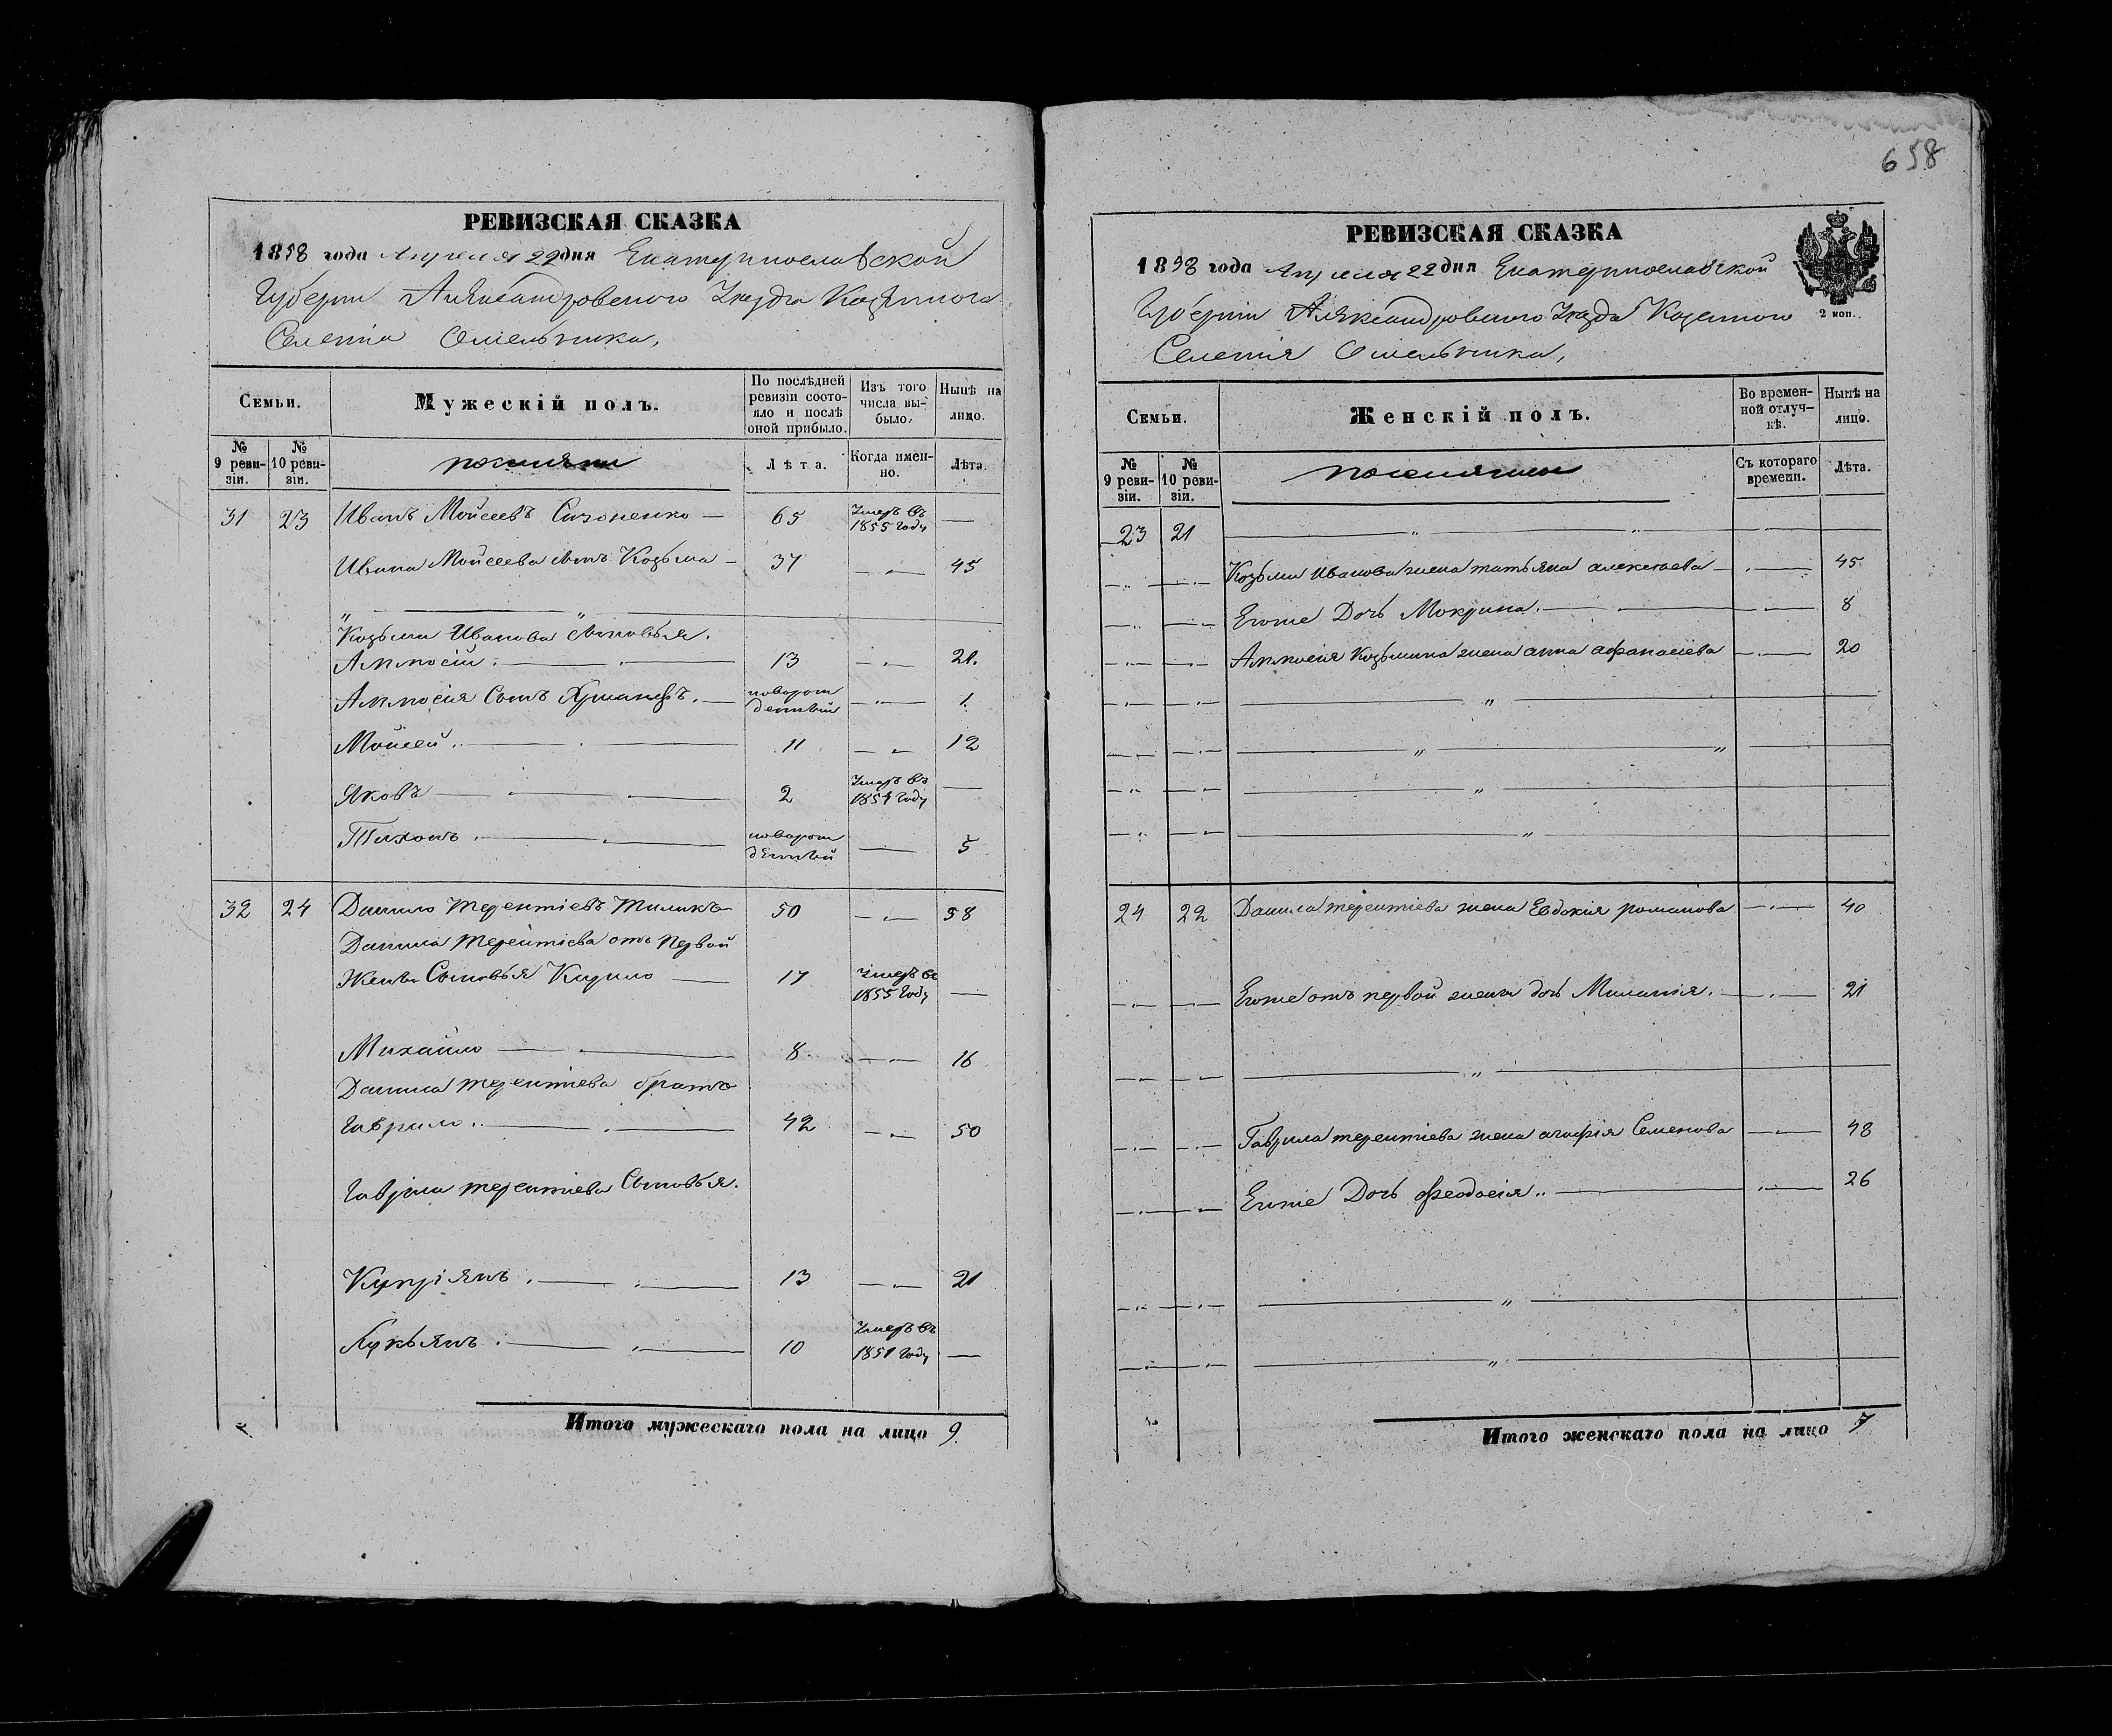 658
РЕВИЗСКАЯ СКАЗКА
1858 года Апреля 22 дня Екатеринославской
Губерни Александровского Уезда Казенного
Селенія Омельника,
Семьи.
Мужескій полъ.
По послѣдней ревизіи состояло и послѣ оной прибыло.
Изъ того числа выбыло.
Нынѣ на лицо.
№ 9 ревизіи.
№ 10 ревизіи.
поселяни
Лѣта.
Когда именно.
Лѣта.
31 23 Иванъ Мойсеевъ Сизоненко — 65 Умеръ въ 1855 году —
Ивана Мойсеева сынъ Козьма — 37 — 45
Козьми Иванова сыновья.
Аммосій. 13 — 21.
Аммосія Сынъ — новорожденный — 1.
Мойсей. 11 — 12
Яковъ 2 Умеръ въ 1857 году —
Тихонъ. новорожденный — 5
32 24 Данило Терентіевъ 50 — 58
Данила Терентіева отъ первой
жены Сыновья Кирило — 17 Умеръ въ 1855 году —
Михайло 8. — 16
Данила Терентіева братъ
Гаврило. 42 — 50
Гаврила Терентіева Сыновья.
Купріянъ. 13 — 21
Лукьянъ. 10 Умеръ въ 1851 году —
Итого мужескаго пола на лицо 9.
РЕВИЗСКАЯ СКАЗКА
1858 года Апреля 22 дня Екатеринославской
Губерніи Александровского Уезда Казенного
Селенія Омельника,
2 коп.
Семьи.
Женскій полъ.
Во временной отлучкѣ.
Нынѣ на лицо.
№ 9 ревизіи.
№ 10 ревизіи.
поселянки
Съ котораго времени.
Лѣта.
23 21
Козьми Иванова жена Татьяна Алексеева — 45
Егоже Дочь Мокрина. 8
Аммосія Козьмина жена Анна Афанасіева — 20
24 22 Данила Терентіева жена Евдокія Романова — 40
Егоже отъ первой жены дочь Миланія. — 21
Гаврила Терентіева жена Агафія Семенова — 48
Егоже Дочь Феодосія.. 26
Итого женскаго пола на лицо 7